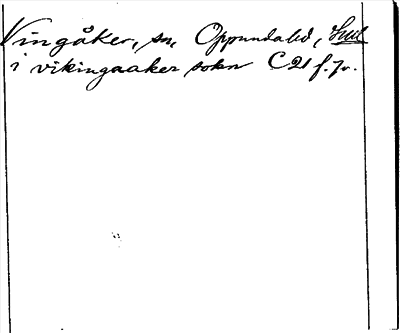 Vingåker, sn, Oppunda hd, Södl
i vikingaaker sokn C 21 f. 7v.